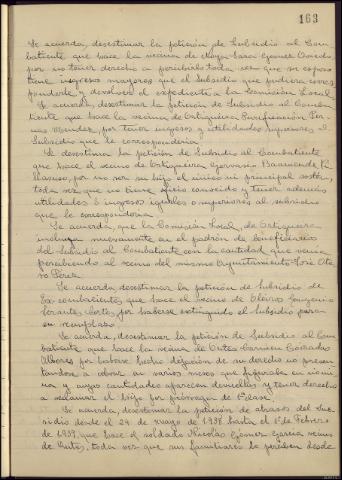 163
Se acuerda, desestimar la petición de Subsidio al Com-
batiente que hace la vecina de Moya Sara Gomez
por no tener derecho a percibirlo toda vez que su esposo
tiene ingresos mayores que el Subsidio que pudiera corres
ponderle y devolver el expediente a la Comisión Local
Se acuerda, desestimar la petición de Subsidio al Comba
tiente que hace la vecina de Ortigueira Purificación
Mendez, por tener ingresos y utilidades superiores al
Subsidio que le correspondería
Se desestima la petición de Subsidio al Combatiente
que hace el vecino de Ortigueira Gervasio
por no ser su hijo el único ni principal sostén,
toda vez que no tiene oficio conocido y tener además
utilidades e ingresos iguales o superiores al subsidio
que le correspondería
Se acuerda, que la Comisión Local, de Ortigueira
incluya nuevamente en el padrón de beneficiarios
del Subsidio al Combatiente con la cantidad que venía
percibiendo al vecino del mismo Ayuntamiento José Ote
ro Pérez
Se acuerda desestimar la petición de subsidio de
Ex combatiente que hace el vecino de Oleiros Eugenio
Cortes por haberse extinguido el Subsidio para
su reemplazo.
Se acuerda, desestimar la petición de Subsidio al Com
batiente que hace la vecina de Ordes Carmen
por haber hecho dejación de su derecho no presen
tandose a cobrar en varios meses que figuraba en nómi
na y cuyas cantidades aparecen devueltas y tener derecho
a reclamar el hijo por prórroga de 1ª clase.
Se acuerda, desestimar la petición de atrasos del Sub
sidio desde el 24 de mayo de 1938 hasta el 1º de Febrero
de 1939, que hace el soldado Nicolás Gomez Garcia vecino
de toda vez que sus familiares lo perciben desde